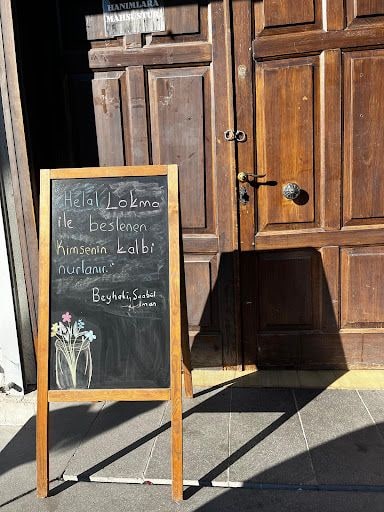 HANIMLARA
MAHSUSTUR
"Helal Lokma
ile beslenen
Kimsenin kalbi
nurlanır."
Beyhaki, Şuabül
iman